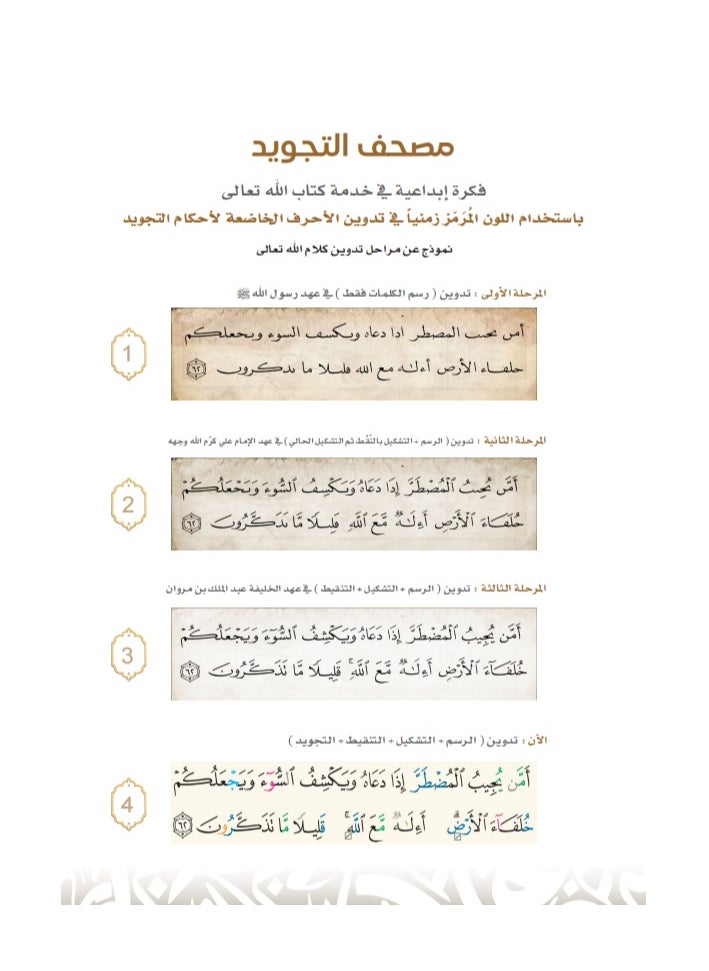 مصحف التجويد
فكرة إبداعية في خدمة كتاب الله تعالى
باستخدام اللون المُرَمَز زمنياً في تدوين الأحرف الخاضعة لأحكام التجويد
نموذج عن مراحل تدوين كلام الله تعالى
المرحلة الأولى : تدوين ( رسم الكلمات فقط ) في عهد رسول الله ﷺ
1
أمں ٮحٮٮ المصطر ادا دعاه وٮكسف السوء وٮحعلكم
حلفاء الأرص أءلـٰه مع الله ڡلٮلا ما ٮدكروں ٦٢
المرحلة الثانية : تدوين ( الرسم + التشكيل بالنُقَط ثم التشكيل الحالي ) في عهد الإمام علي كرّم الله وجهه
2
أَمَّں ٮُحِٮٮُ ٱلْمُصْطَرَّ إِدَا دَعَاهُ وَٮَكْسِفُ ٱلسُّوٓءَ وَٮَحْعَلُكُمْ
حُلَفَآءَ ٱلْأَرْصِ أَءِلَـٰهٌ مَّعَ ٱللَّهِ ڡَلِٮلًا مَّا ٮَدَكَّرُوںَ ٦٢
المرحلة الثالثة : تدوين ( الرسم + التشكيل + التنقيط ) في عهد الخليفة عبد الملك بن مروان
3
أَمَّن يُجِيبُ ٱلْمُضْطَرَّ إِذَا دَعَاهُ وَيَكْشِفُ ٱلسُّوٓءَ وَيَجْعَلُكُمْ
خُلَفَآءَ ٱلْأَرْضِ أَءِلَـٰهٌ مَّعَ ٱللَّهِ ۚ قَلِيلًا مَّا تَذَكَّرُونَ ٦٢
الآن : تدوين ( الرسم + التشكيل + التنقيط + التجويد )
4
أَمَّن يُجِيبُ ٱلْمُضْطَرَّ إِذَا دَعَاهُ وَيَكْشِفُ ٱلسُّوٓءَ وَيَجْعَلُكُمْ
خُلَفَآءَ ٱلْأَرْضِ أَءِلَـٰهٌ مَّعَ ٱللَّهِ ۚ قَلِيلًا مَّا تَذَكَّرُونَ ٦٢